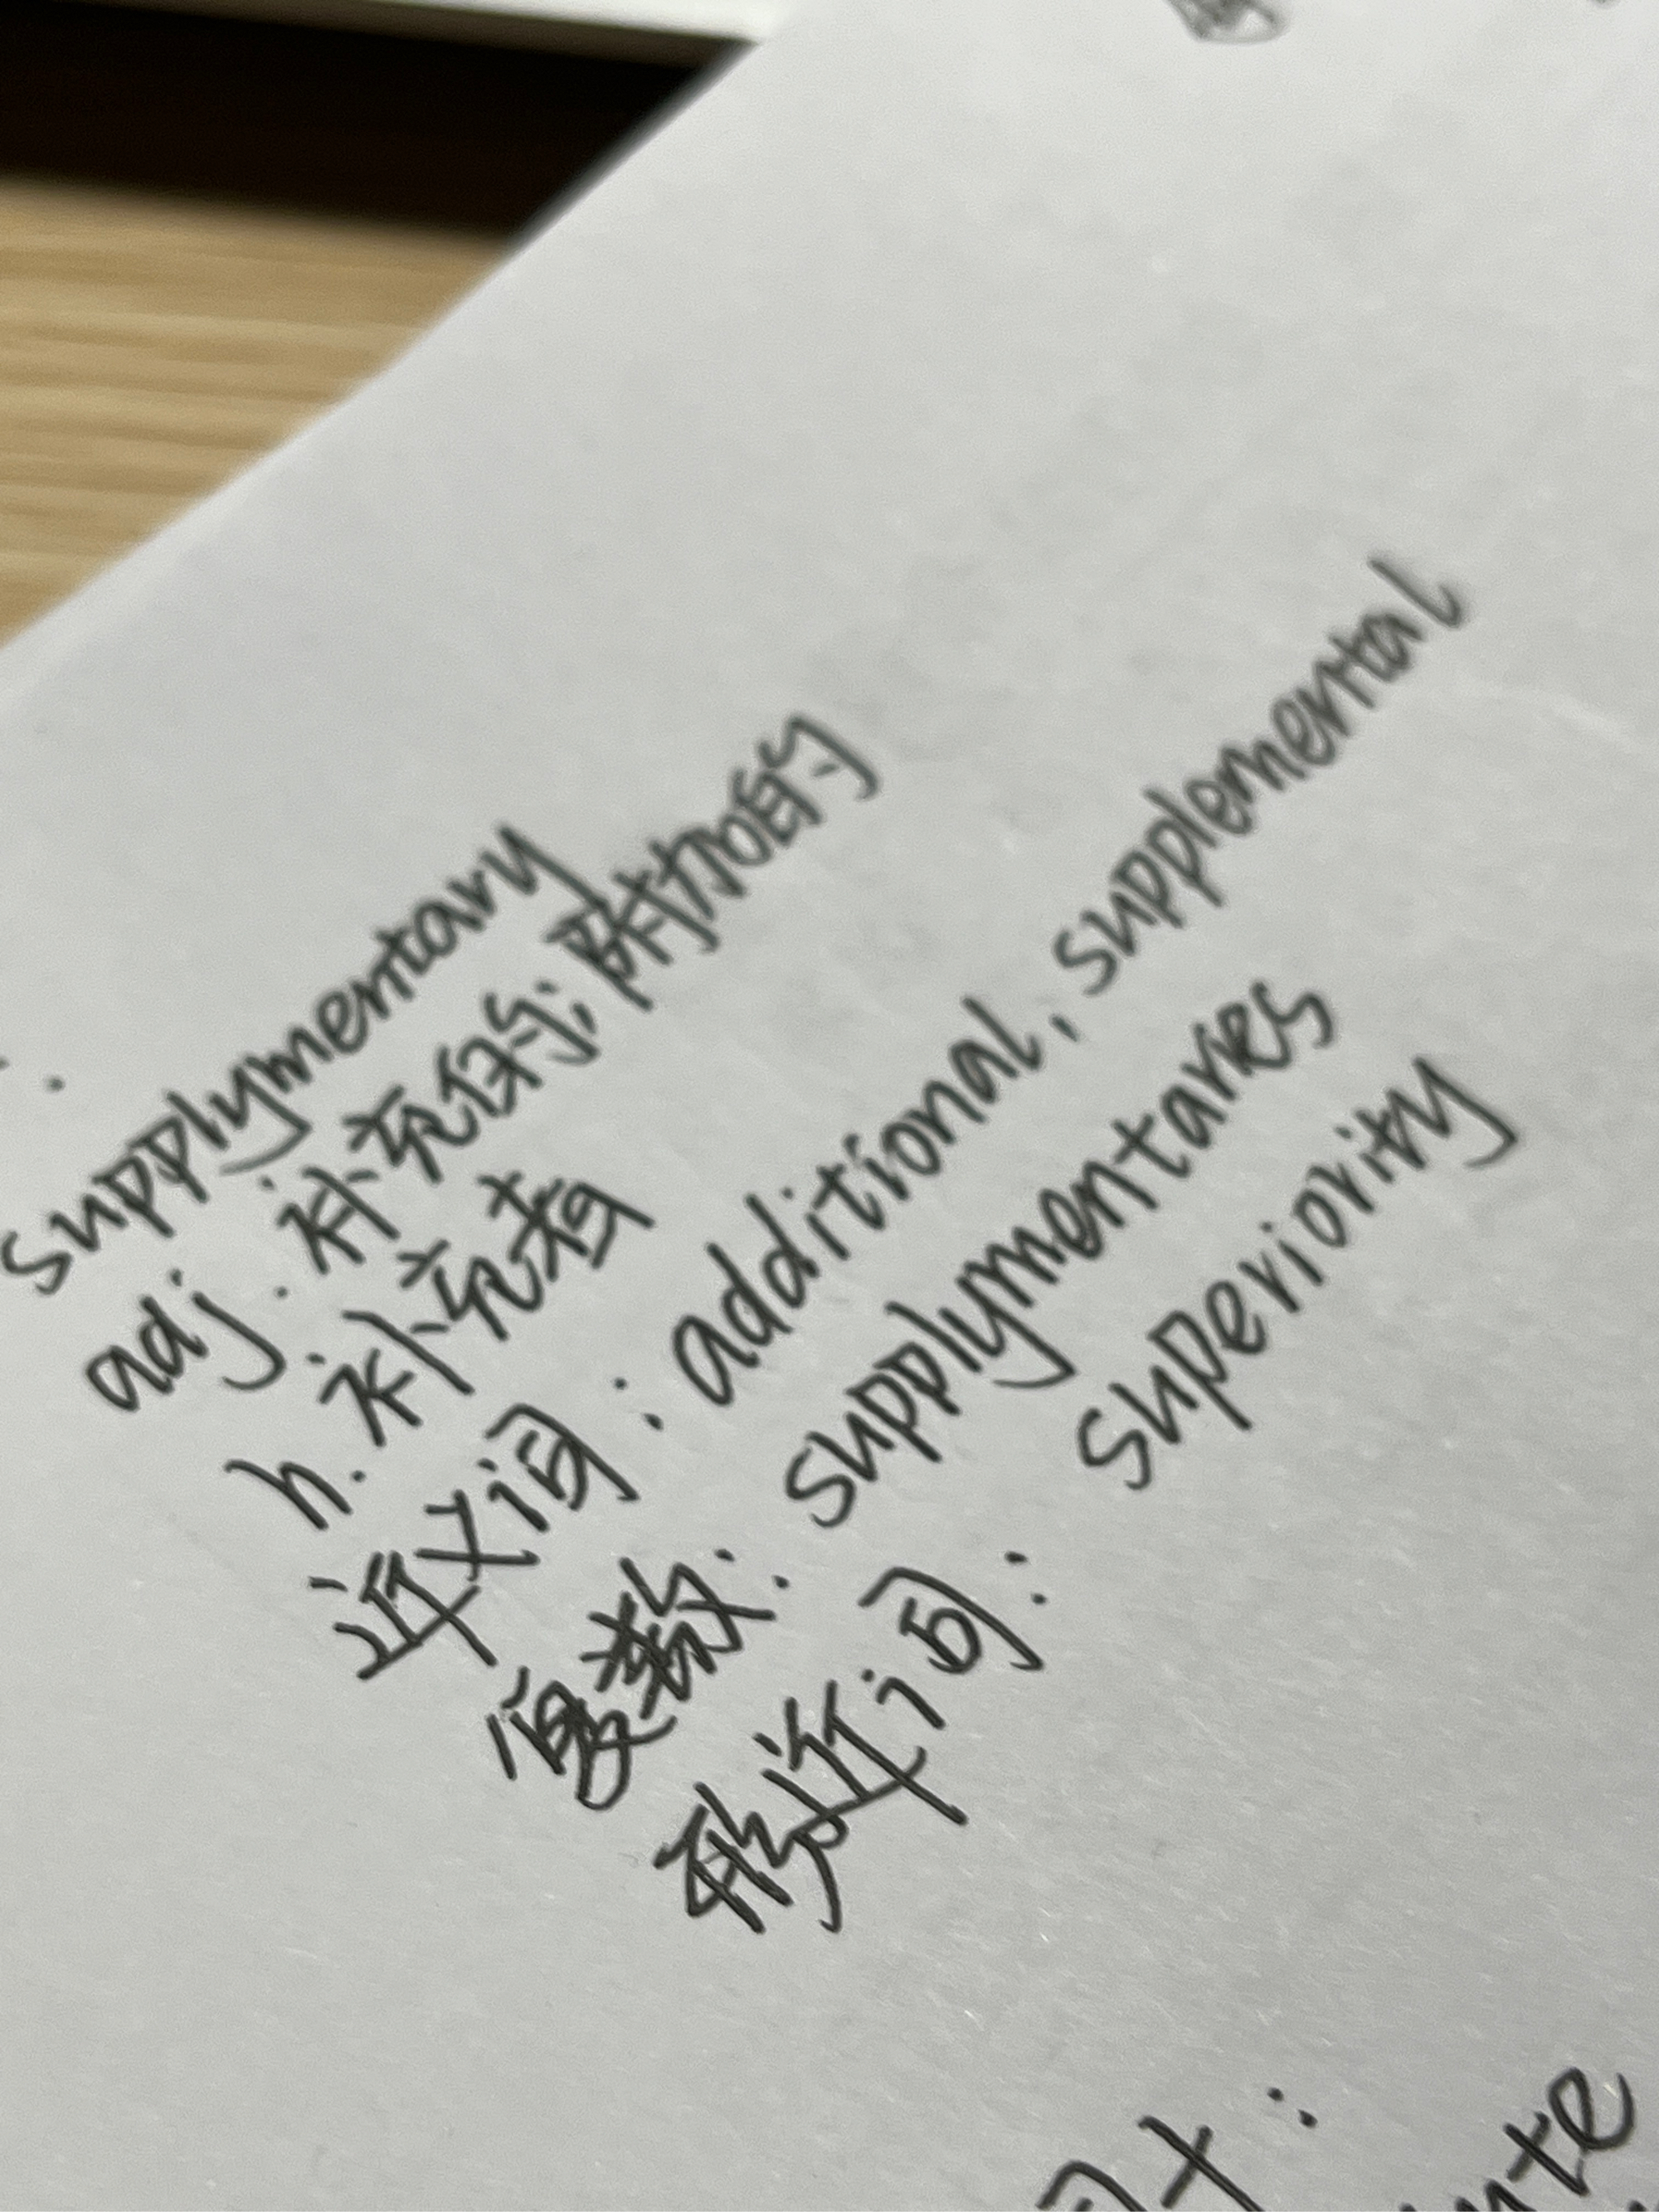 supplymentary
adj. 补充的; 附加的
n. 补充者
近义词: additional, supplemental
复数: supplymentaries
形近词: superiority